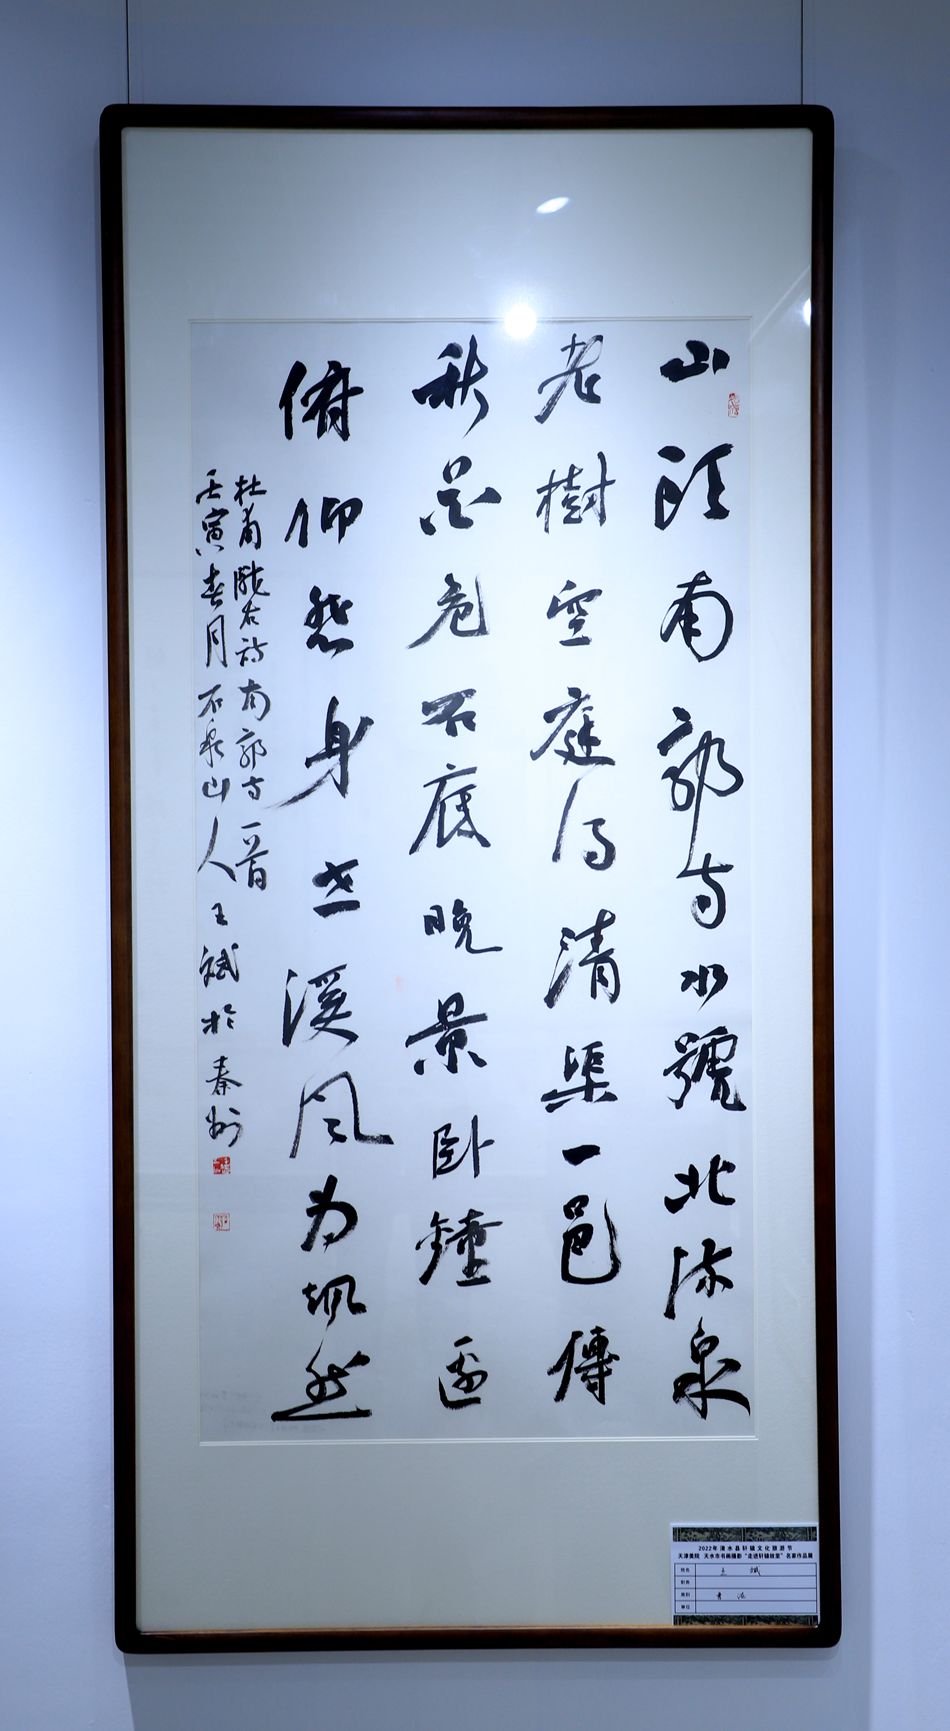 山頭南郭寺水號北流泉
老樹空庭得清渠一邑傳
秋花危石底晚景卧鐘邊
俯仰悲身世溪風为飒然
杜甫隴右詩南郭寺一首
壬寅春月石泉山人王斌於秦州
2022年清水县轩辕文化旅游节
天津美院 天水市书画摄影“走进轩辕故里”名家作品展
姓名 王斌
职务
类别 书法
单位